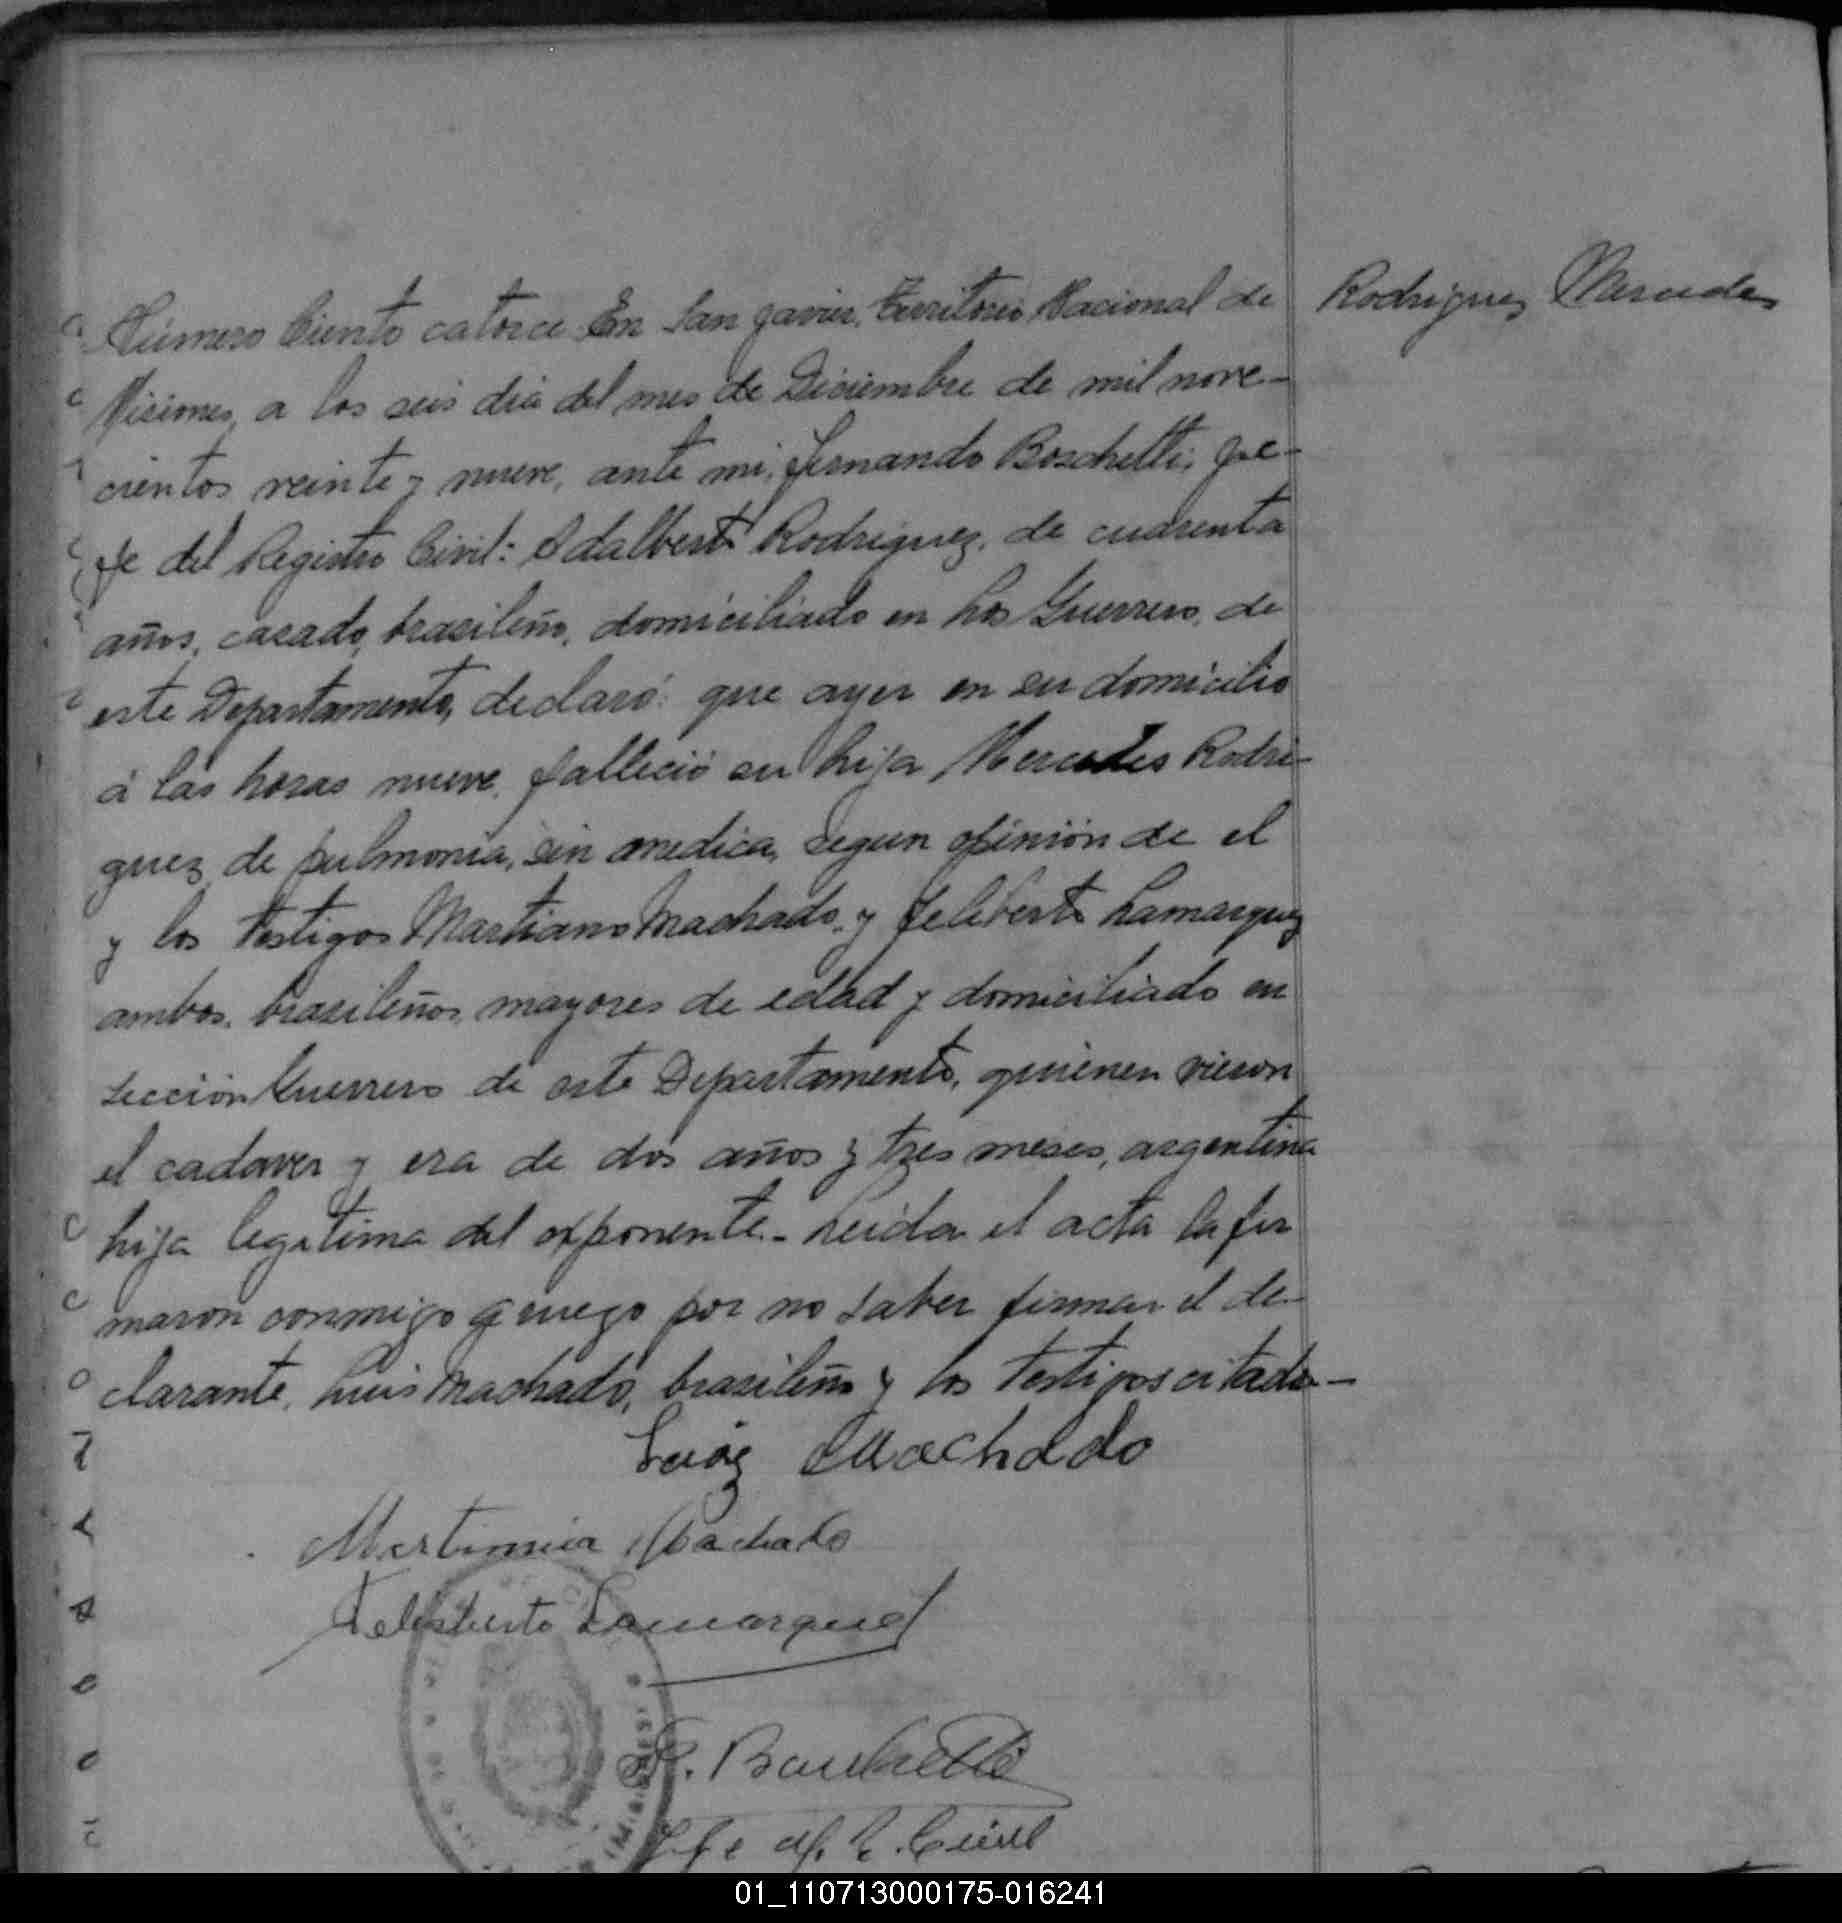 Número Ciento catorce En San Javier, Territorio Nacional de
Rodriguez Mercedes
Misiones, a los seis dia del mes de Diciembre de mil nove-
cientos veinte y nueve, ante mi, Fernando Boschetti, Je-
fe del Registro Civil: Adalberto Rodriguez, de cuarenta
años, casado, brasileño, domiciliado en Los Guerrero, de
este Departamento, declaró: que ayer en su domicilio
á las horas nueve, falleció su hija Mercedes Rodri-
guez, de pulmonia, sin medica, segun opinión de el
y los testigos Martiano Machado, y Feliberto Lamarquez
ambos, brasileños, mayores de edad y domiciliado en
Sección Guerrero de este Departamento, quienen vieron
el cadaver y era de dos años y tres meses, argentina
hija legitima del exponente.- Leida el acta la fir
maron conmigo a ruego por no saber firmar el de-
clarante, Luis Machado, brasileño y los testigos citado-
Luiz Machado
Machado
Feliberto Lamarque
F. Boschetti
Jefe del R. Civil
01_110713000175-016241